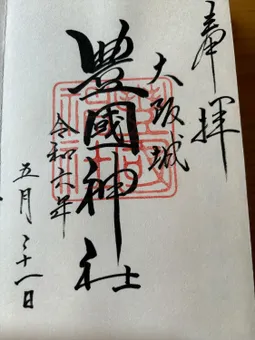 奉拝
大阪城
豊國神社
令和六年
五月三十一日